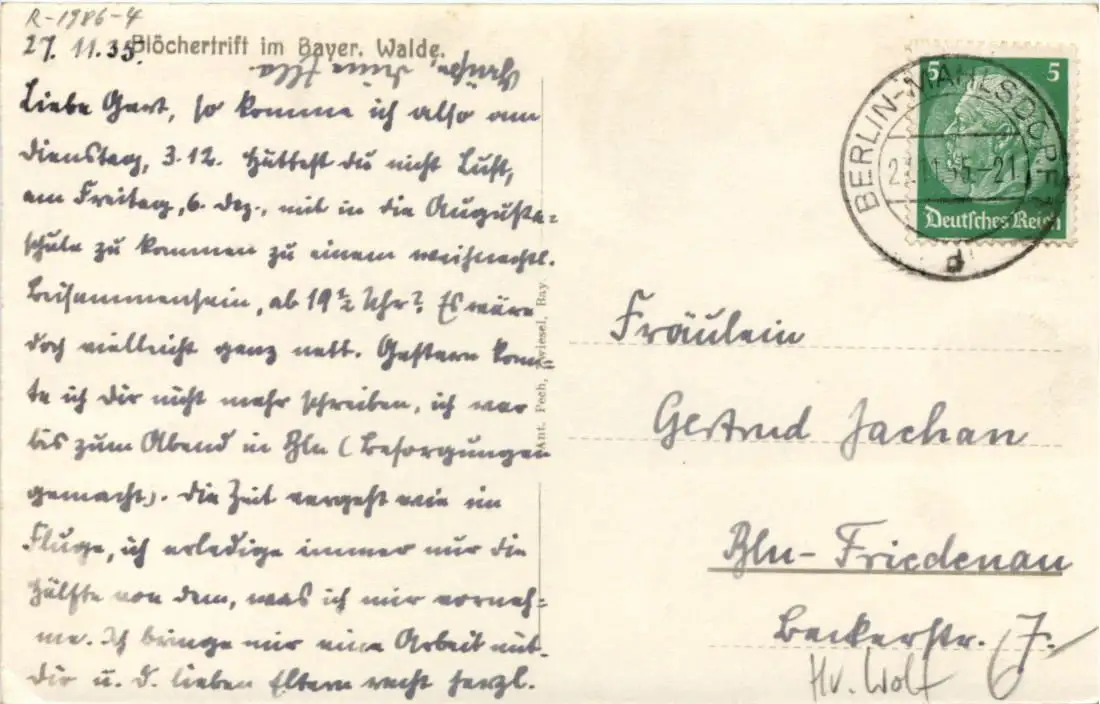 R-1986-4
27. 11. 35.
Blöchertrift im Bayer. Walde.
Liebe Gert, so komme ich also am
Dienstag, 3.12. Hättest du nicht Lust,
am Freitag, 6. Dez., mit in die Augusta-
schule zu kommen zu einem weihnachtl.
Beisammensein, ab 19 1/2 Uhr? Es wäre
doch vielleicht ganz nett. Gestern konn-
te ich dir nicht mehr schreiben, ich war
bis zum Abend in Bln (Besorgungen
gemacht). Die Zeit vergeht wie im
Fluge, ich erledige immer nur die
Hälfte von dem, was ich mir vorneh-
me. Ich bringe mir eine Arbeit mit.
Dir u. d. lieben Eltern recht herzl.
Grüße, Deine
Ant. Pech, Zwiesel, Bay
BERLIN-MAHLSDORF
27.11.35.-21
d
5
5
Deutsches Reich
Fräulein
Gertrud Jachan
Bln-Friedenau
Beckerstr. 7.
Hv. Wolf